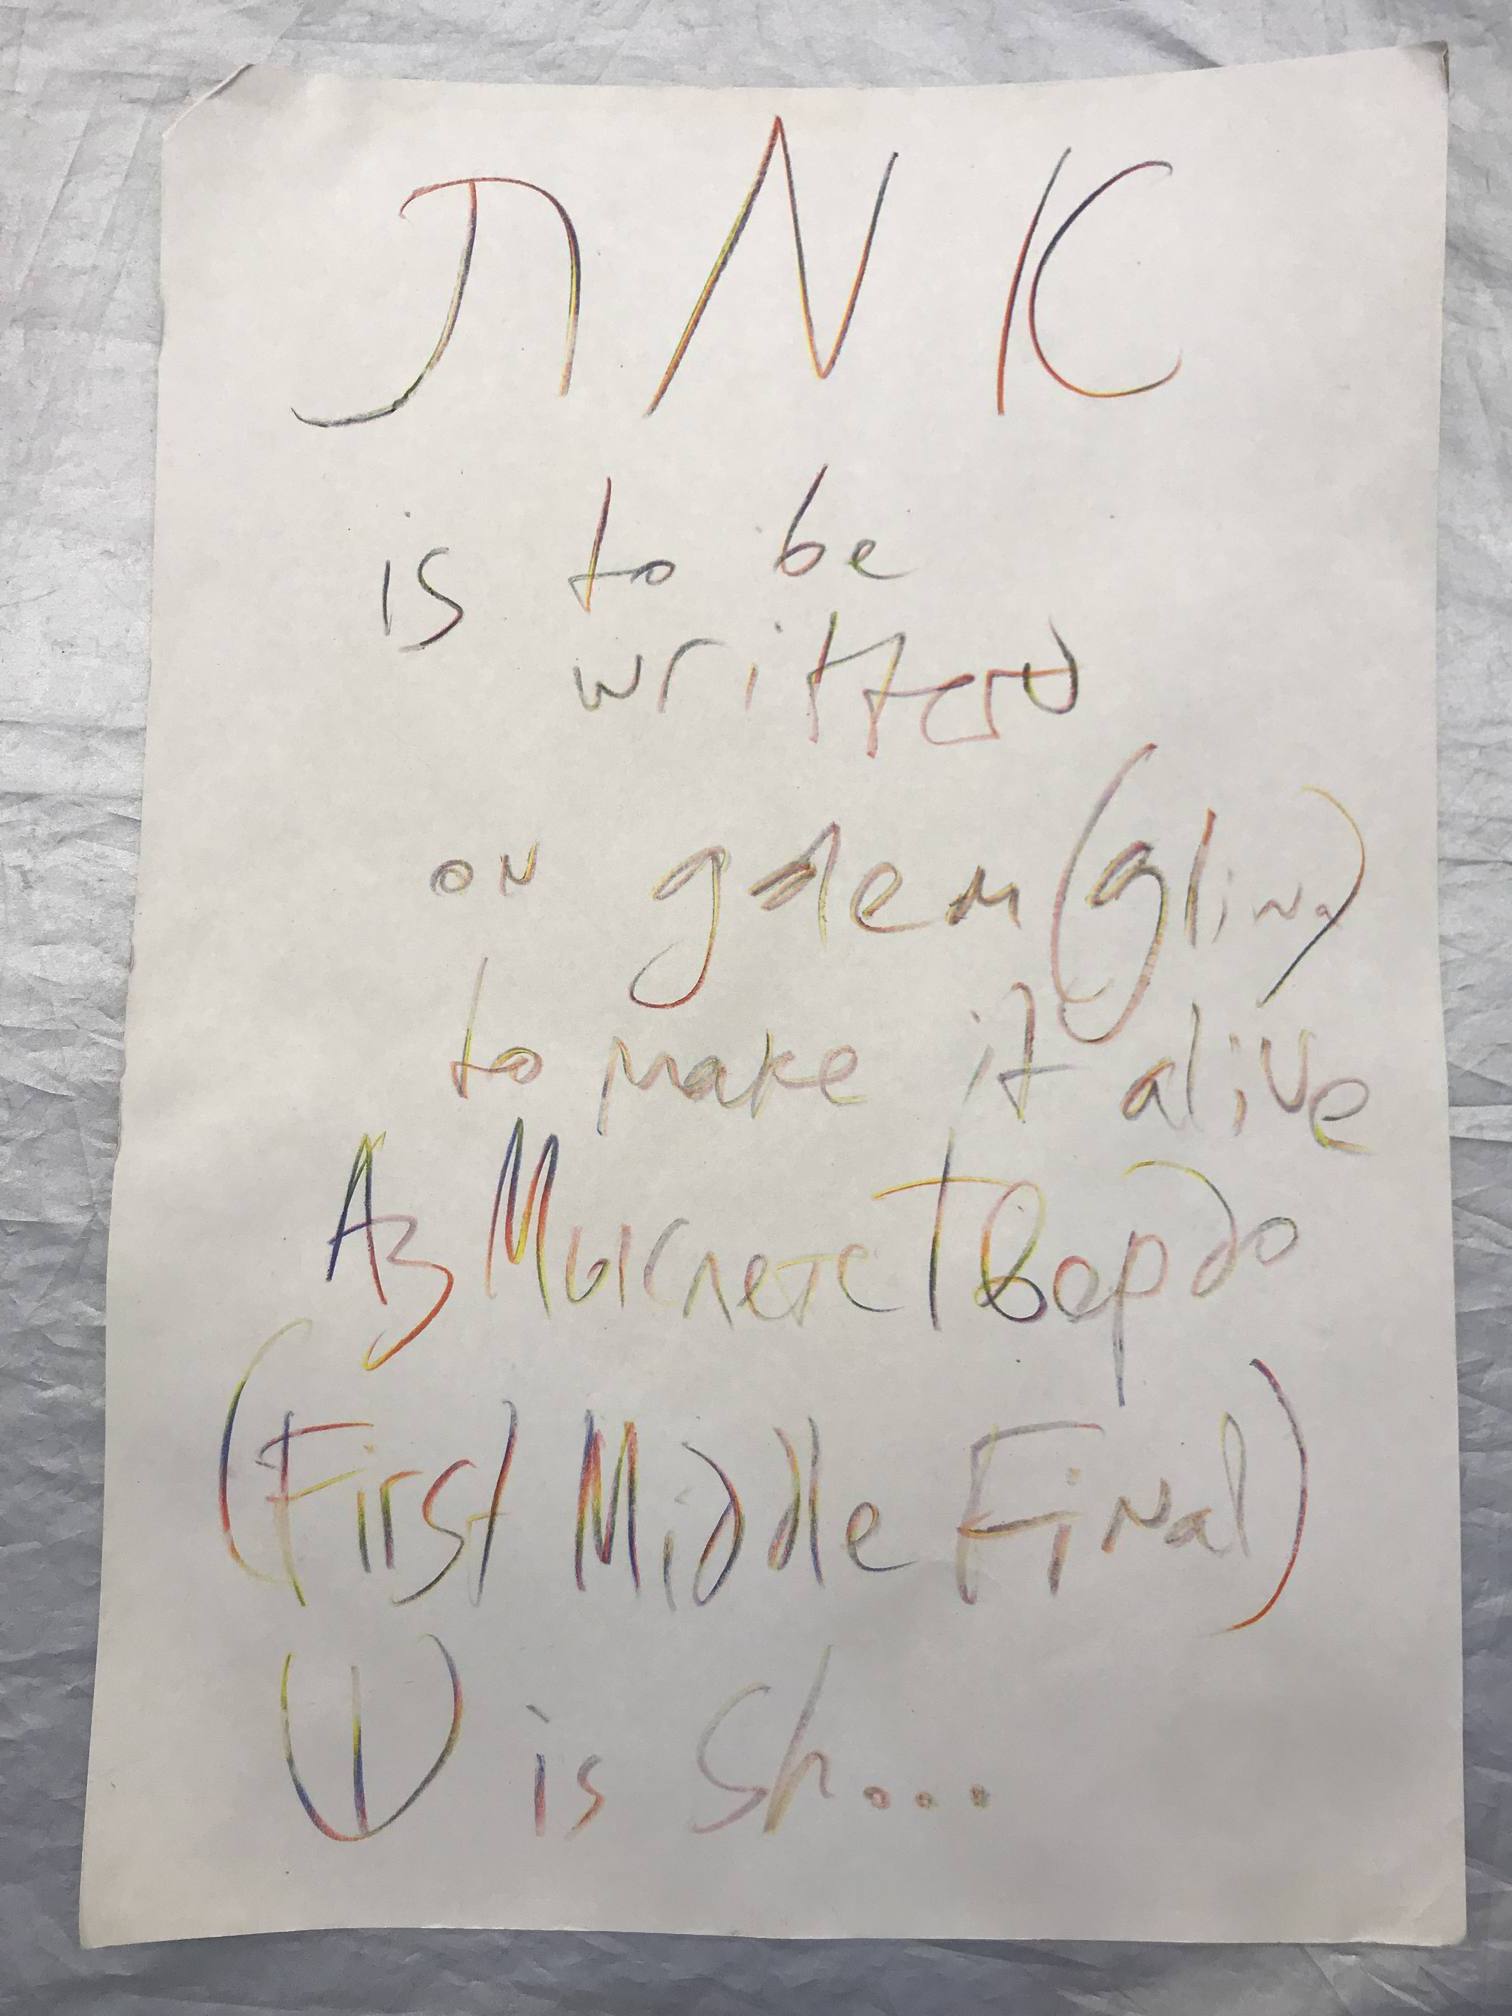 אמת
is to be
written
on golem (glina)
to make it alive
Аз Мыслете Твердо
(First Middle Final)
ש is Sh...